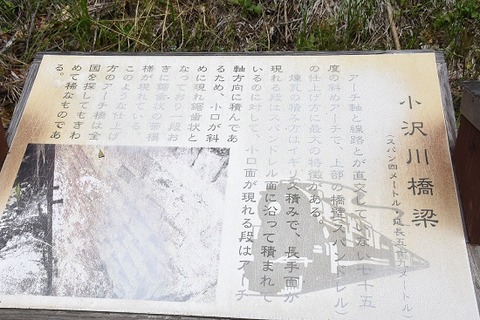 小沢川橋梁
(スパン四メートル・延長五
メートル)
アーチ軸と線路とが直交していない七十五
度の斜めアーチで、上部の橋壁(スパンドレル)
の仕上げ方に最大の特徴がある。
煉瓦の積み方はイギリス積みで、長手面が
現れる段はスパンドレル面に沿って積まれて
いるのに対して、小口面が現れる段はアーチ
軸方向に積んであ
るため、小口が斜
めに現れ鋸歯状と
なっており一段お
きに鋸歯状の蛇腹
様が現れている。
このような仕上げ
方のアーチ橋は全
国を探してもきわ
めて稀なものであ
る。